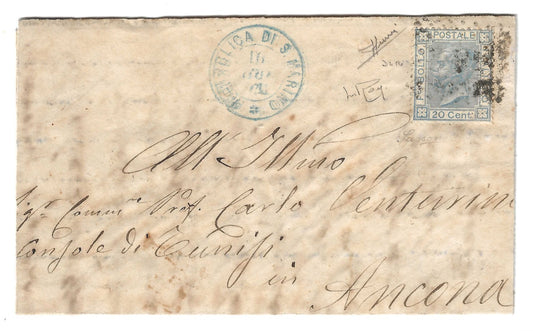 REPUBBLICA DI S. MARINO
BOLLO POSTALE
20 Cent
All' Illmo
Sigr Commr Prof. Carlo Venturini
Console di Tunisi
in
Ancona